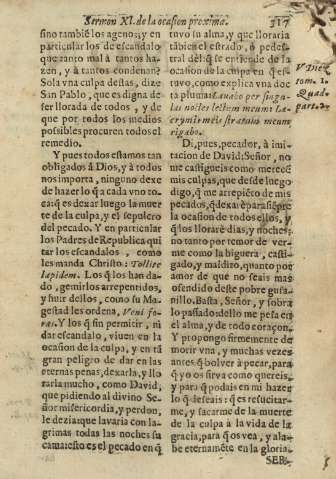 Sermon XI. de la ocasion proxima. 317
sino tambiē los agenos; y en
particular los de escandalo
que tanto mal à tantos ha-
zen, y à tantos condenan?
Sola vna culpa destas, dize
San Pablo, que es digna de
ser llorada de todos, y de
que por todos los medios
possibles procuren todos el
remedio.
Y pues todos estamos tan
obligados à Dios, y à todos
nos importa, ninguno dexe
de hazer lo q̃ a cada vno to-
ca: q̃ es dexar luego la muer
te de la culpa, y el sepulcro
del pecado. Y en particular
los Padres de Republica qui
tar los escandalos, como
les manda Christo: Tollite
lapidem. Los q̃ los han da-
do, gemirlos arrepentidos,
y huir dellos, como su Ma-
gestad les ordena, Veni fo-
ras. Y los q̃ sin permitir, ni
dar escandalo, viuen en la
ocasion de la culpa, y en tã
gran peligro de dar en las
eternas penas, dexarla, y llo
rarla mucho, como David,
que pidiendo al divino Se-
ñor misericordia, y perdon,
le dezia que lavaria con la-
grimas todas las noches su
cama: esto es el pecado en q̃
tuvo su alma, y que lloraria
tābien el estrado, ò pedes-
tral del: q̃ se entiende de la
ocasion de la culpa en q̃ es-
tuvo, como explica vna doc
ta pluma: Lauabo per singu-
las noctes lectum meum: la-
crymis meis stratum meum
rigabo.
Di, pues, pecador, à imi-
tacion de David: Señor, no
me castigueis como merecẽ
mis culpas, que desde luego
digo, q̃ me arrepiẽto de mis
pecados, q̃ dexarè para siẽpre
la ocasion de todos ellos, y
q̃ los llorarè dias, y noches;
no tanto por temor de ver-
me como la higuera, casti-
gado, y maldito, quanto por
amor de que no seais mas
ofendido deste pobre gusa-
nillo. Basta, Señor, y sobra
lo passado: dello me pesa en
el alma, y de todo coraçon.
Y propongo firmemente de
morir vna, y muchas vezes
antes q̃ bolver à pecar, para
q̃ yo os sirva como quereis,
y para q̃ podais en mi hazer
lo q̃ deseais: q̃ es resucitar-
me, y sacarme de la muerte
de la culpa à la vida de la
gracia, para q̃ os vea, y ala-
be eternamẽte en la gloria.
SER-
tom. 1.
Quad.